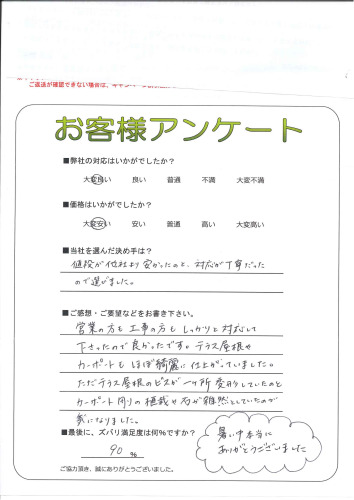 ご返送が確認できない場合は、キャンペーン
お客様アンケート
■弊社の対応はいかがでしたか？
大変良い 良い 普通 不満 大変不満
■価格はいかがでしたか？
大変安い 安い 普通 高い 大変高い
■当社を選んだ決め手は？
値段が他社より安かったのと、対応が丁寧だった
ので選びました。
■ご感想・ご要望などをお書き下さい。
営業の方も工事の方もしっかりと対応して
下さったので良かったです。テラス屋根や
カーポートもほぼ綺麗に仕上がっていました。
ただテラス屋根のビスが一ヶ所変形していたのと
カーポート周りの植栽や石が雑然としていたのが
気になりました。
■最後に、ズバリ満足度は何％ですか？
90 %
暑い中本当に
ありがとうございました
ご協力頂き、誠にありがとうございました。